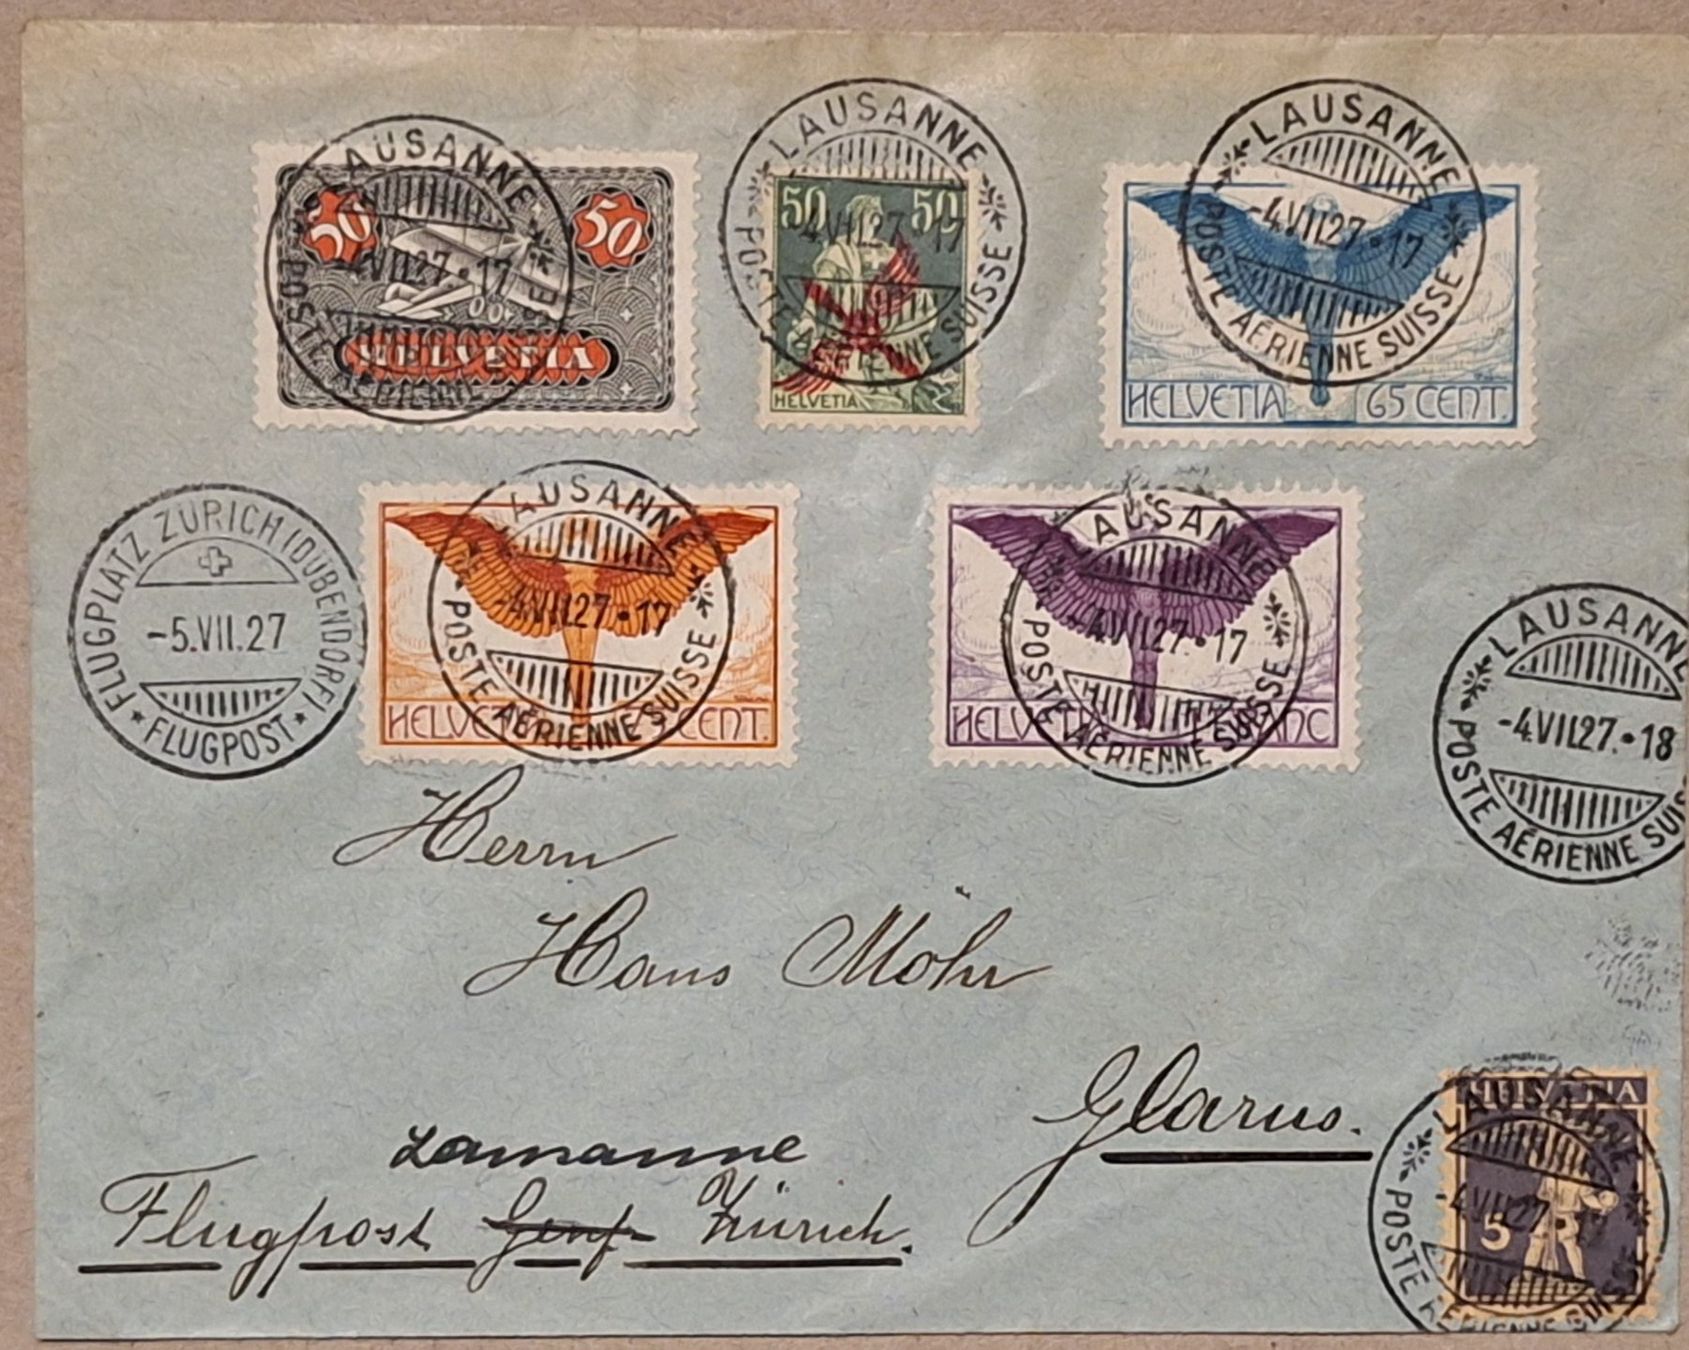 LAUSANNE
-4.VII.27•17
POSTE AÉRIENNE
50 50
HELVETIA
LAUSANNE
50 50
-4.VII.27•17
POSTE AÉRIENNE SUISSE
HELVETIA
LAUSANNE
-4.VII.27•17
POSTE AÉRIENNE SUISSE
HELVETIA 65 CENT.
FLUGPLATZ ZÜRICH (DÜBENDORF)
-5.VII.27
FLUGPOST
LAUSANNE
-4.VII.27•17
POSTE AÉRIENNE SUISSE
HELVETIA CENT.
LAUSANNE
-4.VII.27•17
POSTE AÉRIENNE SUISSE
HELVETIA 1 FRANC
LAUSANNE
-4.VII.27•18
POSTE AÉRIENNE SUIS
Herrn
Hans Mohr
Glarus.
Lausanne
Flugpost Genf- Zürich.
HELVETIA
LAUSANNE
-4.VII.27
5
POSTE AÉRIENNE SUISSE